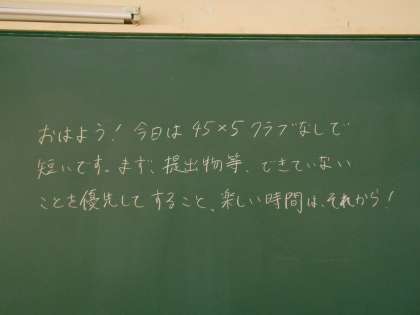 おはよう！今日は45×5クラブなしで
短いです。まず、提出物等、できていない
ことを優先してすること、楽しい時間は、それから！